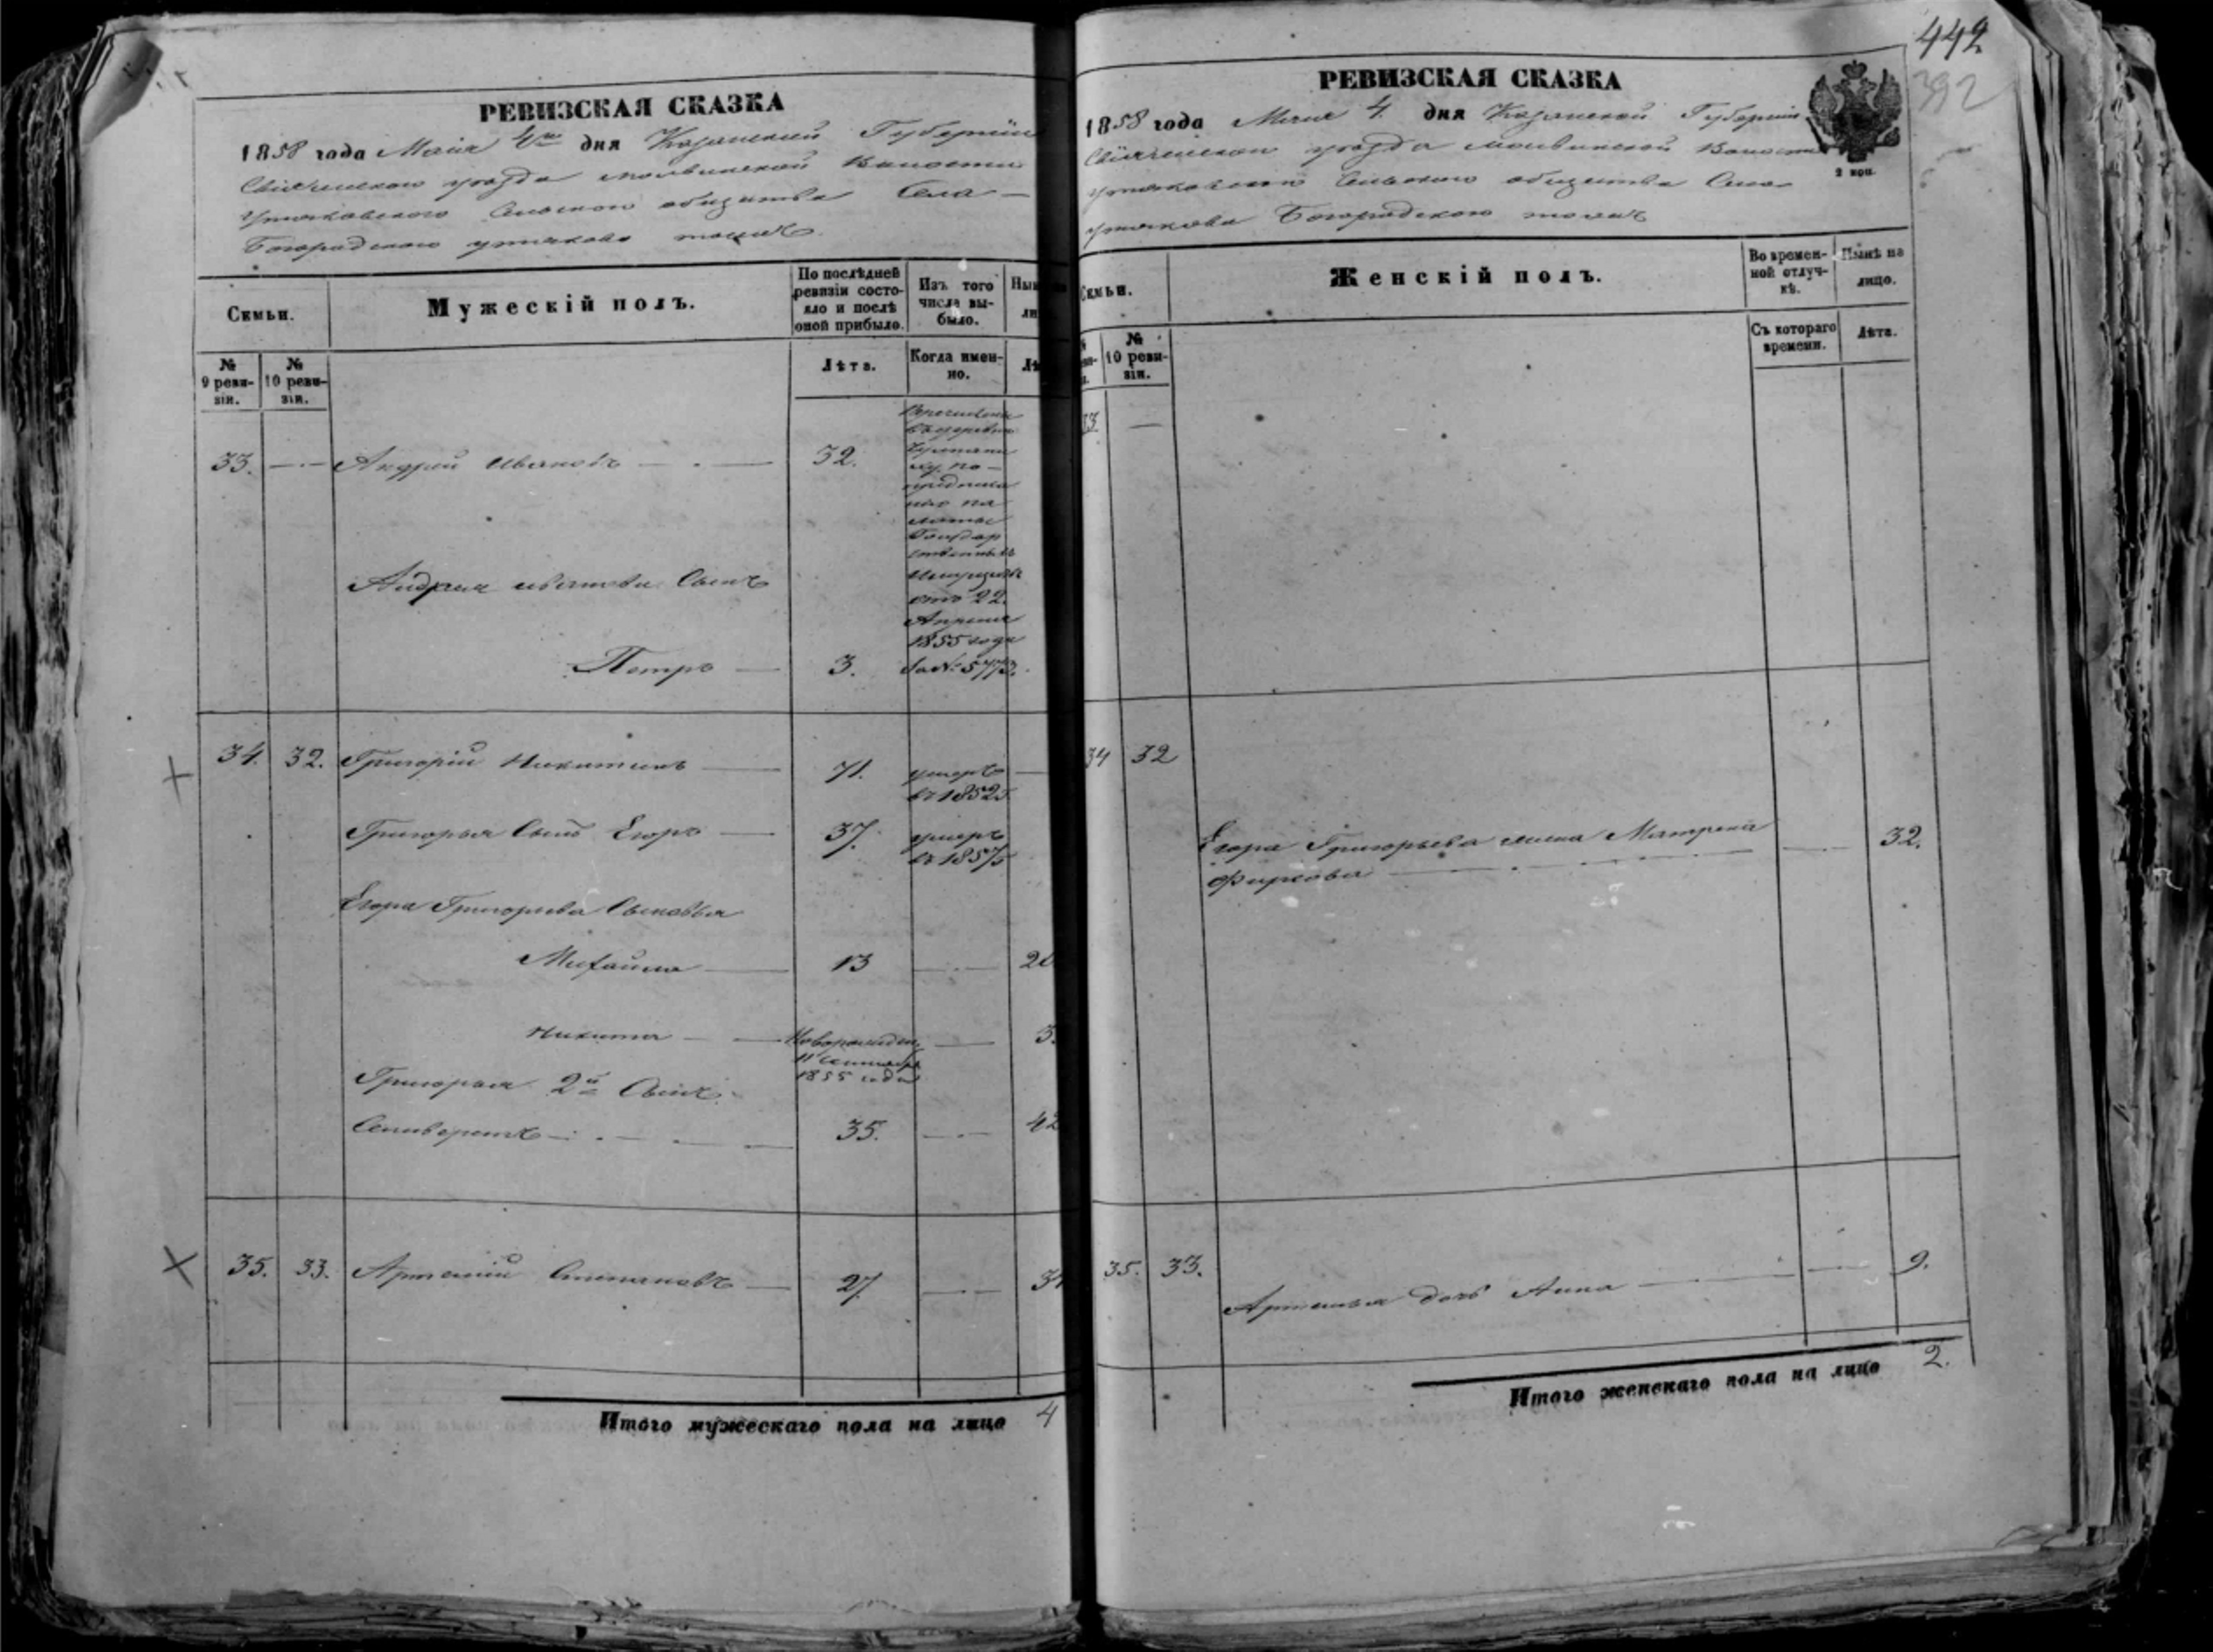 442
392
РЕВИЗСКАЯ СКАЗКА
1858 года Маія 4го дня Казанской Губерніи
Свіяжскаго уезда Молвинской Волости
Утяковскаго Сельскаго общества Села
Богородскаго Утякова тожъ
Семьи.
Мужескій полъ.
По послѣдней ревизіи состояло и послѣ оной прибыло.
Изъ того числа выбыло.
№ 9 ревизіи.
№ 10 ревизіи.
Лѣта.
Когда именно.
33. Андрей Ивановъ 32.
Перечислены
въ деревню
по
предписа
нію па
латы
Государ
ственныхъ
Имуществъ
отъ 22.
Апреля
1855 года
за № 5773.
Андрея Иванова Сынъ
Петръ 3.
34. 32. Григорій Никитинъ 71. умеръ
въ 1852
Григорья Сынъ Егоръ 37. умеръ
въ 1857
Егора Григорьева Сыновья
Михайла 13
Никита Новорожден.
11 Сентября
1855 года 3
Григорья 2й Сынъ
Селиверстъ 35. 42
35. 33. Артемій Степановъ 27
Итого мужескаго пола на лицо 4
РЕВИЗСКАЯ СКАЗКА
1858 года Маія 4. дня Казанской Губерніи
Свіяжскаго уезда Молвинской Волости
Утяковскаго Сельскаго общества Села
Утякова Богородскаго тожъ
2 коп.
Семьи.
Женскій полъ.
Во временной отлучкѣ.
Нынѣ на лицо.
№ 10 ревизіи.
Съ котораго времени.
Лѣта.
33
34 32
Егора Григорьева жена Матрена 32.
Фирсова
35. 33.
Артемья дочь Анна 9.
Итого женскаго пола на лицо 2.